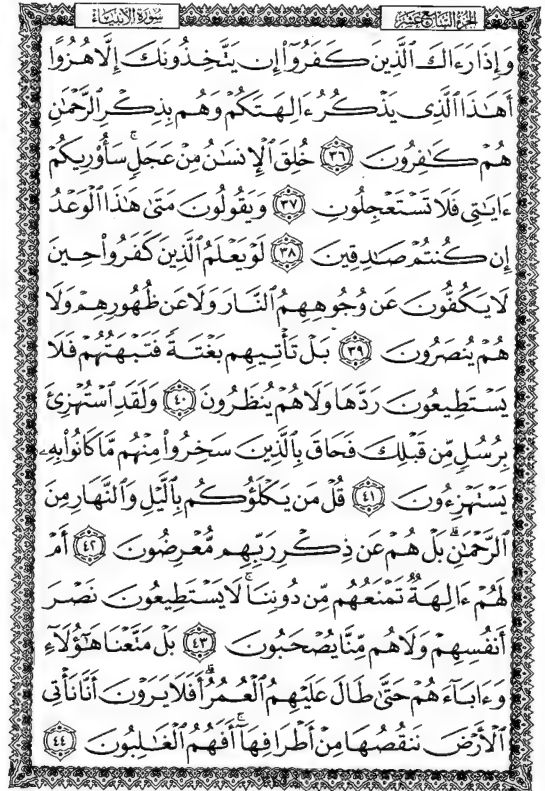 الجزء السابع عشر
سورة الأنبياء
وَإِذَا رَءَاكَ ٱلَّذِينَ كَفَرُوٓا۟ إِن يَتَّخِذُونَكَ إِلَّا هُزُوًا
أَهَٰذَا ٱلَّذِى يَذْكُرُ ءَالِهَتَكُمْ وَهُم بِذِكْرِ ٱلرَّحْمَٰنِ
هُمْ كَٰفِرُونَ ٣٦ خُلِقَ ٱلْإِنسَٰنُ مِنْ عَجَلٍ ۚ سَأُو۟رِيكُمْ
ءَايَٰتِى فَلَا تَسْتَعْجِلُونِ ٣٧ وَيَقُولُونَ مَتَىٰ هَٰذَا ٱلْوَعْدُ
إِن كُنتُمْ صَٰدِقِينَ ٣٨ لَوْ يَعْلَمُ ٱلَّذِينَ كَفَرُوا۟ حِينَ
لَا يَكُفُّونَ عَن وُجُوهِهِمُ ٱلنَّارَ وَلَا عَن ظُهُورِهِمْ وَلَا
هُمْ يُنصَرُونَ ٣٩ بَلْ تَأْتِيهِم بَغْتَةً فَتَبْهَتُهُمْ فَلَا
يَسْتَطِيعُونَ رَدَّهَا وَلَا هُمْ يُنظَرُونَ ٤٠ وَلَقَدِ ٱسْتُهْزِئَ
بِرُسُلٍ مِّن قَبْلِكَ فَحَاقَ بِٱلَّذِينَ سَخِرُوا۟ مِنْهُم مَّا كَانُوا۟ بِهِۦ
يَسْتَهْزِءُونَ ٤١ قُلْ مَن يَكْلَؤُكُم بِٱلَّيْلِ وَٱلنَّهَارِ مِنَ
ٱلرَّحْمَٰنِ ۗ بَلْ هُمْ عَن ذِكْرِ رَبِّهِم مُّعْرِضُونَ ٤٢ أَمْ
لَهُمْ ءَالِهَةٌ تَمْنَعُهُم مِّن دُونِنَا ۚ لَا يَسْتَطِيعُونَ نَصْرَ
أَنفُسِهِمْ وَلَا هُم مِّنَّا يُصْحَبُونَ ٤٣ بَلْ مَتَّعْنَا هَٰٓؤُلَآءِ
وَءَابَآءَهُمْ حَتَّىٰ طَالَ عَلَيْهِمُ ٱلْعُمُرُ ۗ أَفَلَا يَرَوْنَ أَنَّا نَأْتِى
ٱلْأَرْضَ نَنقُصُهَا مِنْ أَطْرَافِهَآ ۚ أَفَهُمُ ٱلْغَٰلِبُونَ ٤٤